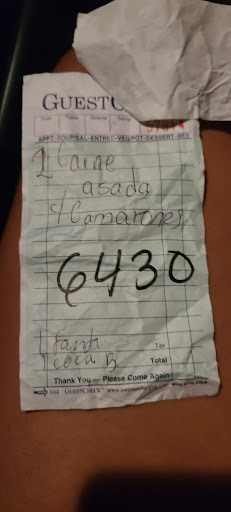 GUESTC
Date Table Guests Server
APPT-SOUP/SAL-ENTREE-VEG/POT-DESSERT-BEV
2 Carne
asada
c/ Camarones
6430
1 fanti
1 coca B
Tax
Total
Thank You — Please Come Again